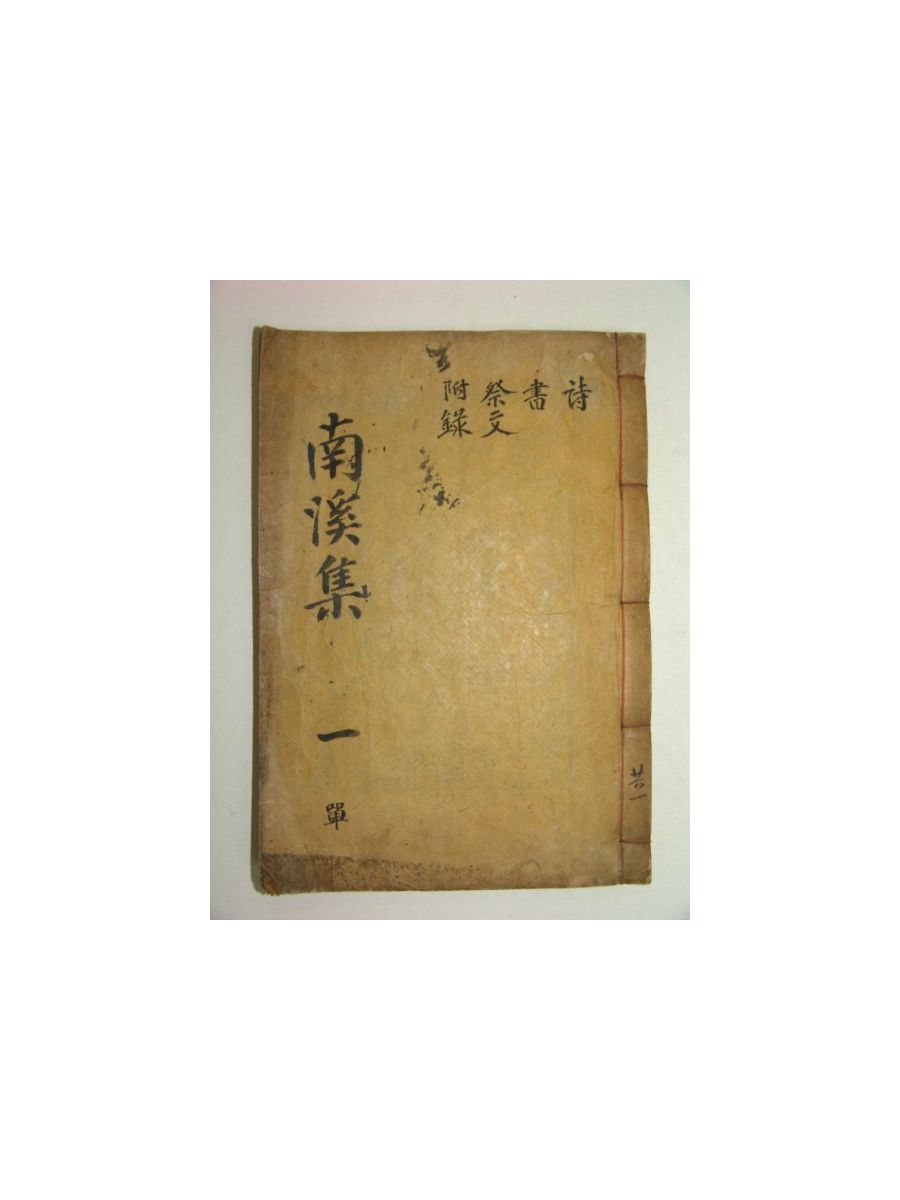 詩
書
祭文
附錄
南溪集 一 單
共一